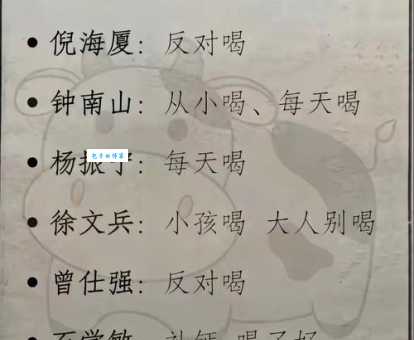 倪海厦：反对喝
钟南山：从小喝、每天喝
杨振宁：每天喝
徐文兵：小孩喝 大人别喝
曾仕强：反对喝
石学敏：补钙 喝了好